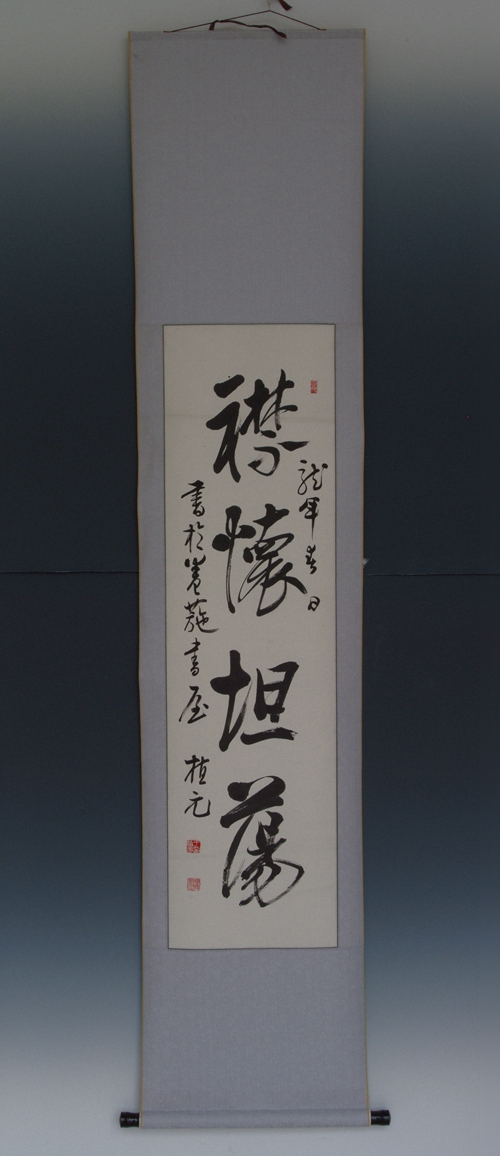 龍年春日
襟懷坦蕩
書於
書屋 植元